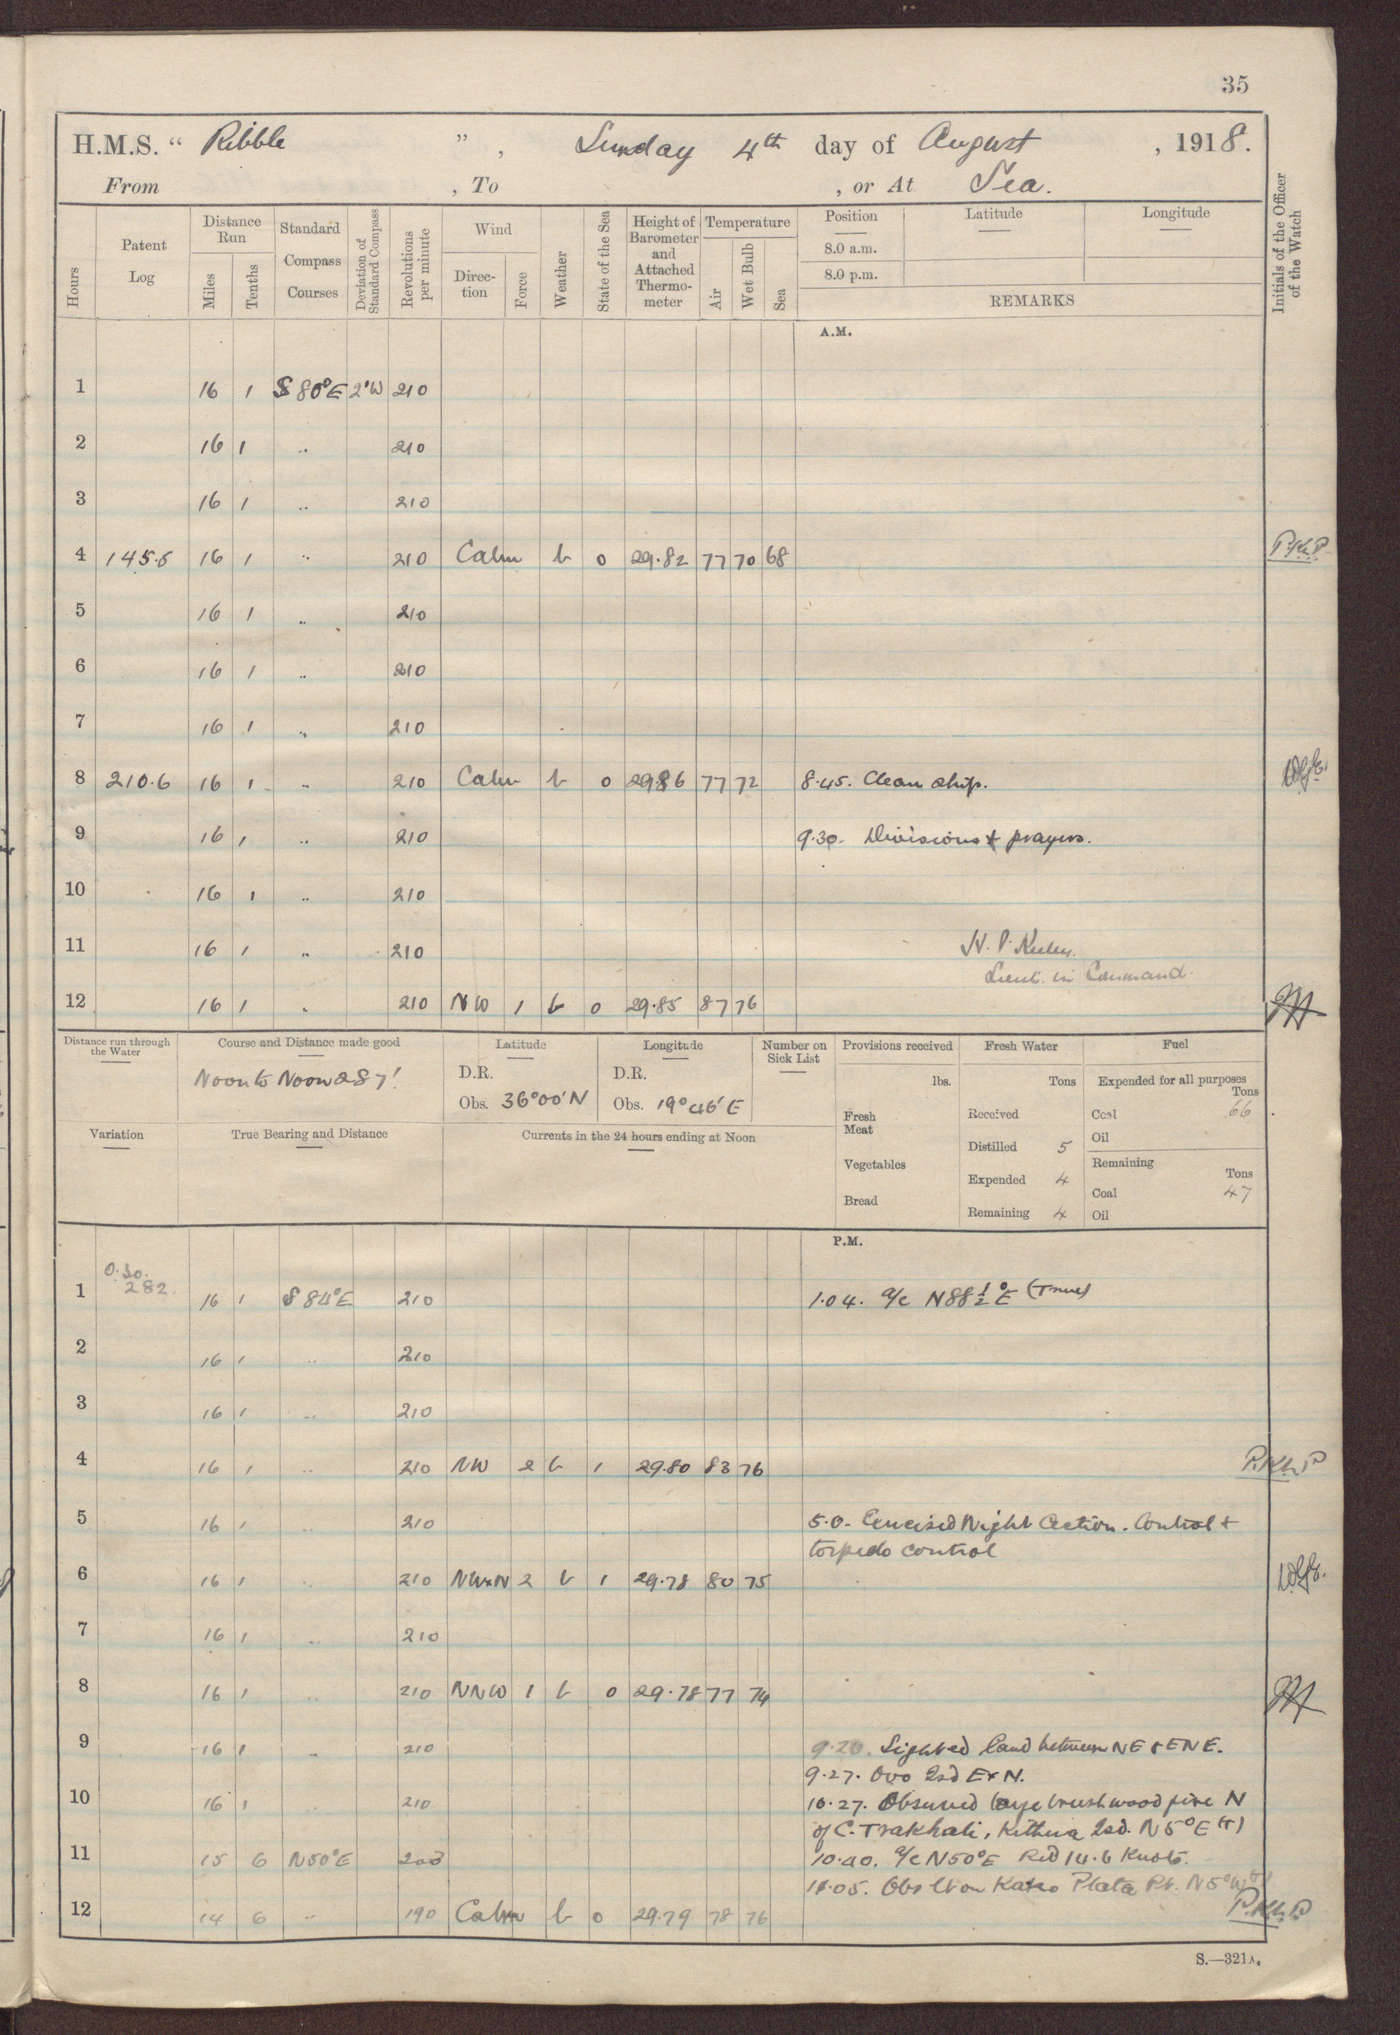 35
H.M.S. “ Ribble ” , Sunday 4th day of August , 1918.
From , To , or At Sea.
Hours
Patent Log
Distance Run
Miles
Tenths
Standard Compass Courses
Deviation of Standard Compass
Revolutions per minute
Wind
Direction
Force
Weather
State of the Sea
Height of Barometer and Attached Thermometer
Temperature
Air
Wet Bulb
Sea
Position
Latitude
Longitude
8.0 a.m.
8.0 p.m.
REMARKS
Initials of the Officer of the Watch
A.M.
1 16 1 S 80°E 2°W 210
2 16 1 .. 210
3 16 1 .. 210
4 145.6 16 1 .. 210 Calm b 0 29.82 77 70 68
5 16 1 .. 210
6 16 1 .. 210
7 16 1 .. 210
8 210.6 16 1 .. 210 Calm b 0 29.86 77 72 8.45. Clean ship.
9 16 1 .. 210 9.30. Divisions & prayers.
10 16 1 .. 210
11 16 1 .. 210 H. P.
Lieut. in Command.
12 16 1 .. 210 NW 1 b 0 29.85 87 76
Distance run through the Water
Course and Distance made good
Noon to Noon 287'
Latitude
D.R.
Obs. 36°00'N
Longitude
D.R.
Obs. 19°46'E
Number on Sick List
Provisions received
lbs.
Fresh Meat
Vegetables
Bread
Fresh Water
Tons
Received
Distilled 5
Expended 4
Remaining 4
Fuel
Expended for all purposes
Tons
Coal 66
Oil
Remaining
Tons
Coal 47
Oil
Variation
True Bearing and Distance
Currents in the 24 hours ending at Noon
P.M.
1 282 16 1 S 84°E 210 1.04. a/c N88½°E (True)
2 16 1 .. 210
3 16 1 .. 210
4 16 1 .. 210 NW 2 b 1 29.80 83 76
5 16 1 .. 210 5.0. Exercised Night Action. Control &
torpedo control
6 16 1 .. 210 NWxN 2 b 1 29.78 80 75
7 16 1 .. 210
8 16 1 .. 210 NNW 1 b 0 29.78 77 74
9 16 1 .. 210 9.20. Sighted land between NE & ENE.
9.27. Ovo Isd ExN.
10 16 1 210 10.27. Observed large brushwood fire N
of C. Trakhali, Kithira Isd. N5°E (T)
11 15 6 N50°E 200 10.40. a/c N50°E Red 14.6 Knots.
11.05. Obs lt on Kato Plata Pt. N5°W (T)
12 14 6 .. 190 Calm b 0 29.79 78 76
S.—321A.